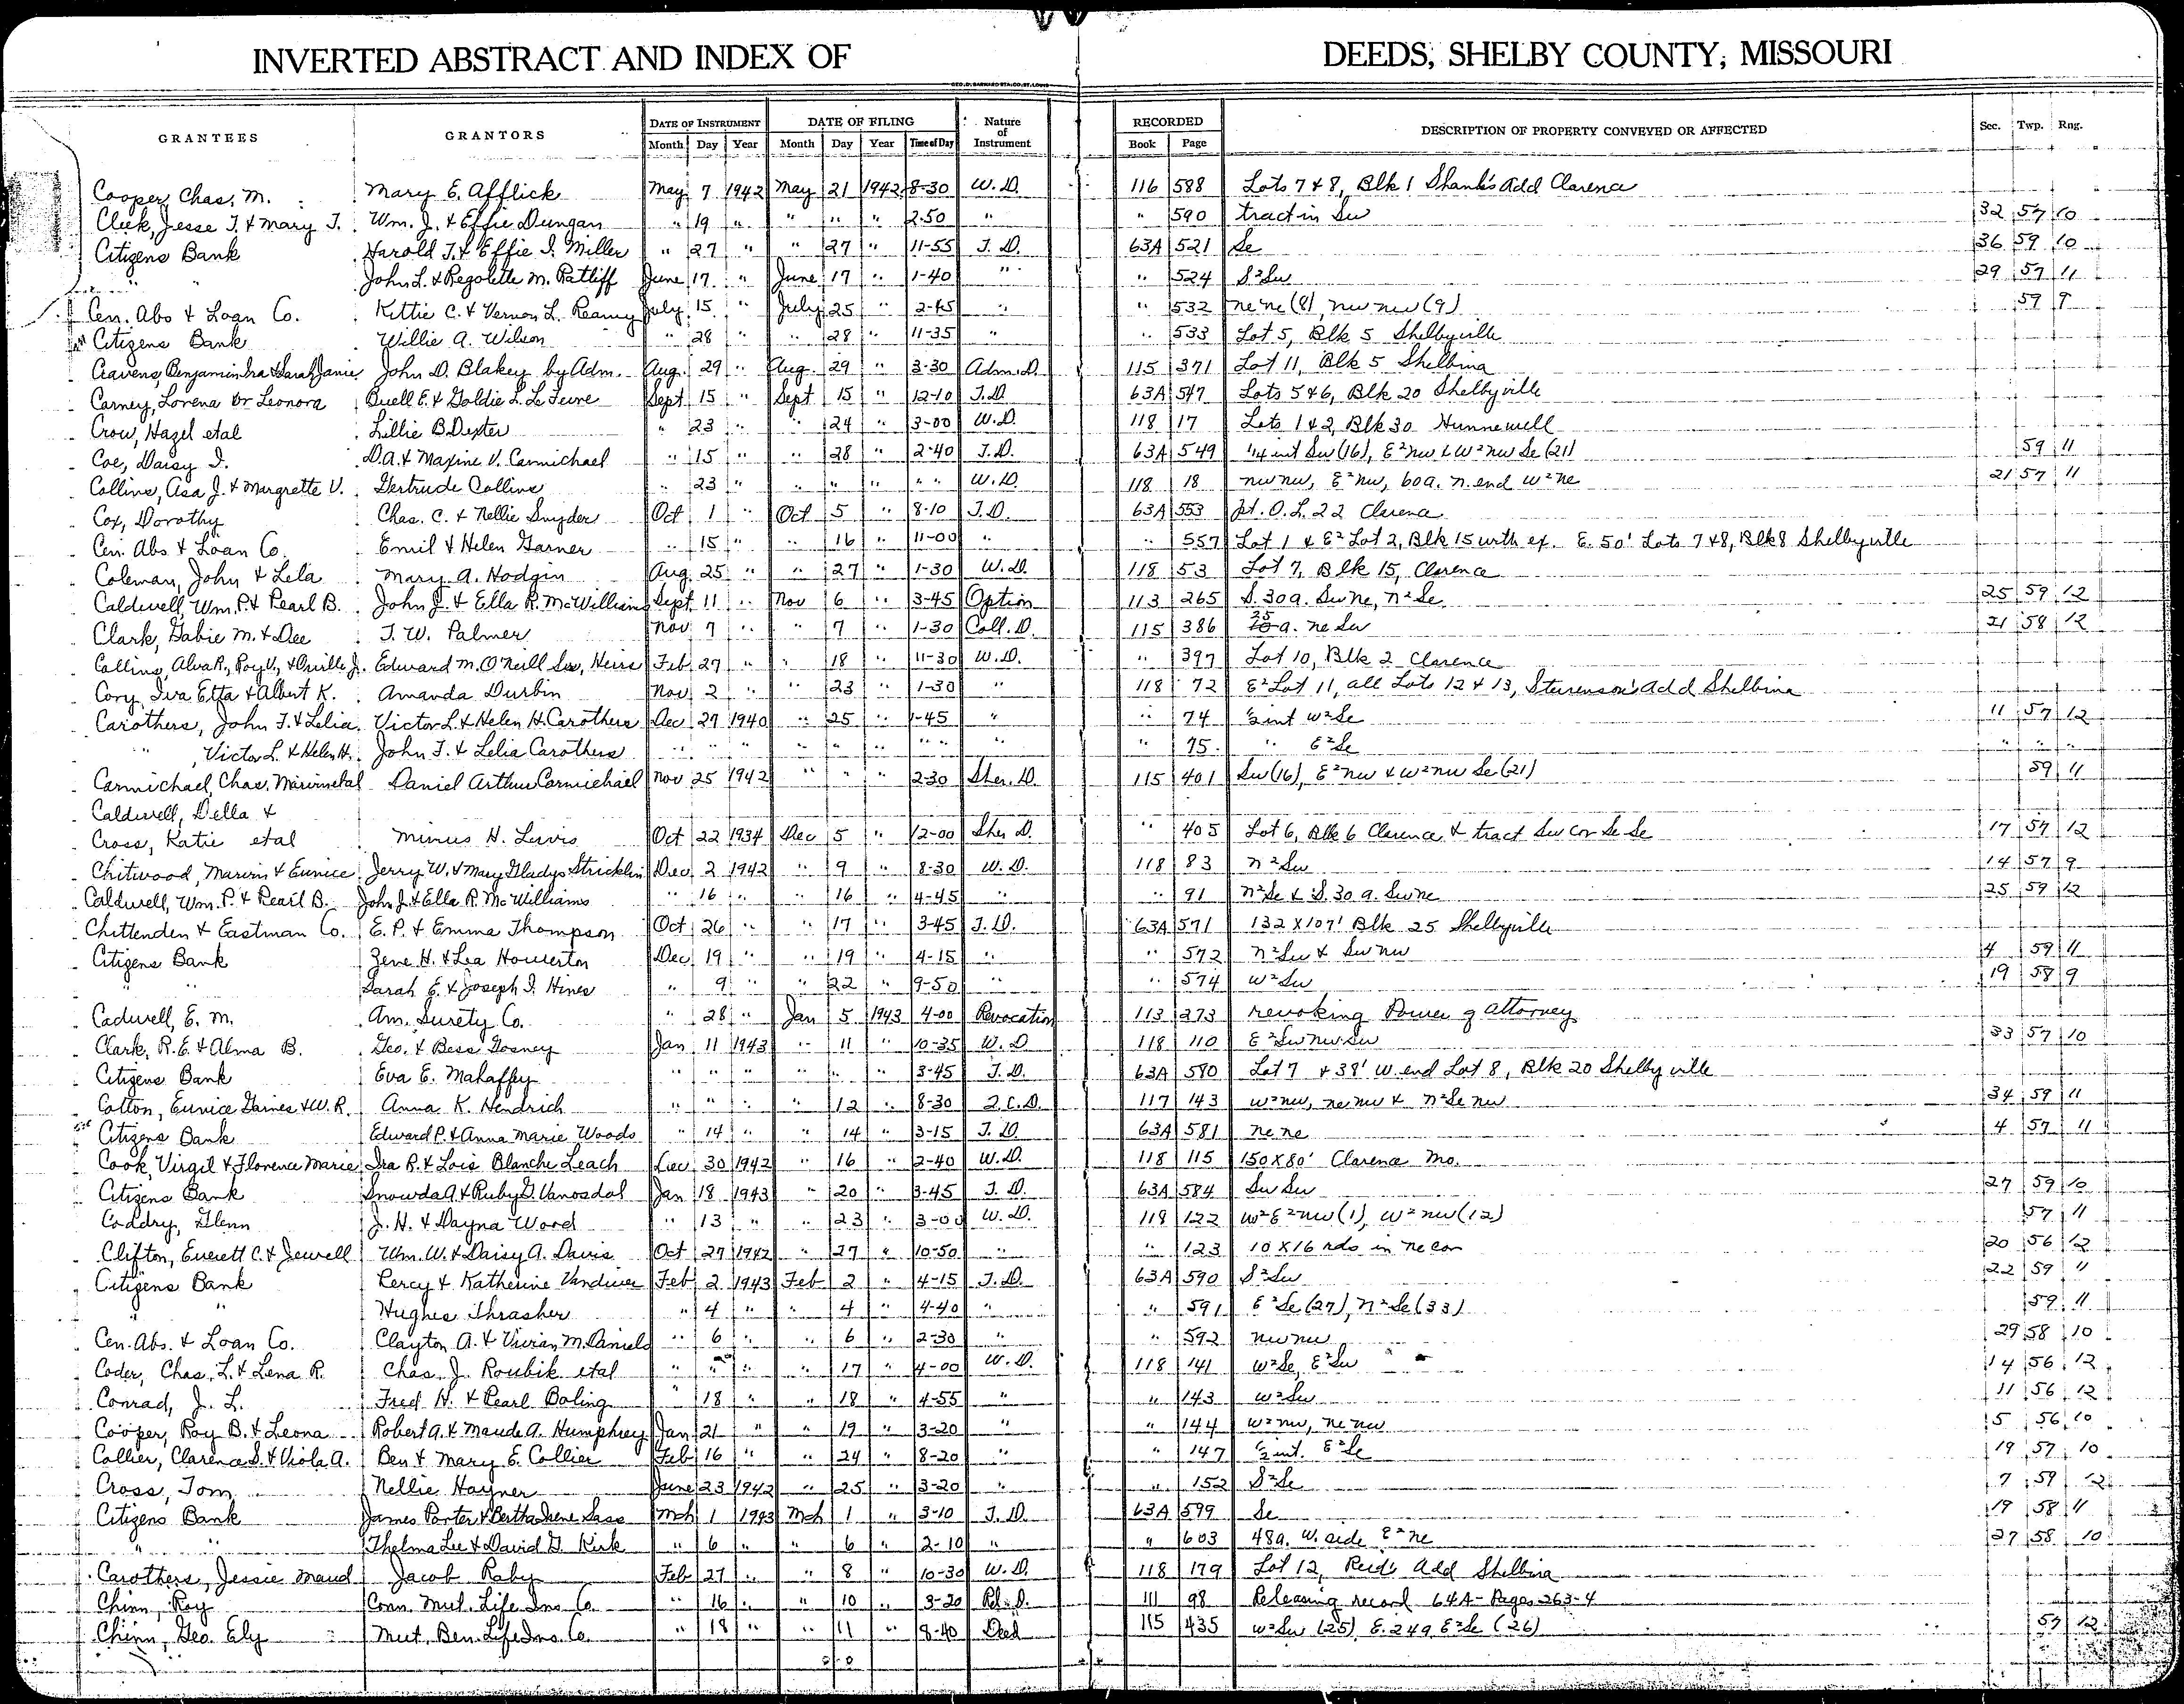 INVERTED ABSTRACT AND INDEX OF DEEDS, SHELBY COUNTY, MISSOURI
GRANTEES GRANTORS DATE OF INSTRUMENT DATE OF FILING Nature of Instrument RECORDED DESCRIPTION OF PROPERTY CONVEYED OR AFFECTED Sec. Twp. Rng.
Month Day Year Month Day Year Time of Day Book Page
Cooper, Chas. M. Mary E. Afflick May 7 1942 May 21 1942 8-30 W. D. 116 588 Lots 7 & 8, Blk 1 Shank's Add Clarence
Cleek, Jesse T. & Mary J. Wm. J. & Effie Dungan " 19 " " " " 2-50 " " 590 tract in Sw 32 57 10
Citizens Bank Harold T. & Effie I. Miller " 27 " " 27 " 11-55 T. D. 63A 521 Se 36 59 10
" " John L. & Regolette M. Ratliff June 17 " June 17 " 1-40 " " 524 S²Sw 29 57 11
Cen. Abs & Loan Co. Kittie C. & Vernon L. Reamy July 15 " July 25 " 2-45 " " 532 ne ne (8), nw nw (9) 59 9
Citizens Bank Willie A. Wilson " 28 " " 28 " 11-35 " " 533 Lot 5, Blk 5 Shelbyville
Cravens, Benjamin Ira & Sarah Janie John D. Blakey by Adm. Aug. 29 " Aug. 29 " 3-30 Adm. D. 115 371 Lot 11, Blk 5 Shelbina
Carney, Lorena or Leonora Buell E. & Goldie L. Le Feure Sept 15 " Sept 15 " 12-10 T. D. 63A 547 Lots 5 & 6, Blk 20 Shelbyville
Crow, Hazel etal Lillie B. Dexter " 23 " " 24 " 3-00 W. D. 118 17 Lots 1 & 2, Blk 30 Hunnewell
Coe, Daisy I. D. A. & Maxine V. Carmichael " 15 " " 28 " 2-40 T. D. 63A 549 1/4 int Sw (16), E²nw & W²nw Se (21) 59 11
Collins, Asa J. & Margrette V. Gertrude Collins " 23 " " " " " " W. D. 118 18 nw nw, E²nw, 60 a. n. end w²ne 21 57 11
Cox, Dorothy Chas. C. & Nellie Snyder Oct 1 " Oct 5 " 8-10 T. D. 63A 553 pt. O. L. 22 Clarence
Cen. Abs. & Loan Co. Emil & Helen Garner " 15 " " 16 " 11-00 " " 557 Lot 1 & E² Lot 2, Blk 15 with ex. E. 50' Lots 7 & 8, Blk 8 Shelbyville
Coleman, John & Lela Mary A. Hodgin Aug 25 " " 27 " 1-30 W. D. 118 53 Lot 7, Blk 15, Clarence
Caldwell, Wm. P. & Pearl B. John J. & Ella R. McWilliams Sept 11 " Nov 6 " 3-45 Option 113 265 S. 30 a. Sw ne, n²Se 25 59 12
Clark, Gabie M. & Dee T. W. Palmer Nov 7 " " 7 " 1-30 Coll. D. 115 386 25 a. ne Sw 21 58 12
Collins, Alva R., Roy V., & Orville J. Edward M. O'Neill Sr., Heirs Feb 27 " " 18 " 11-30 W. D. " 397 Lot 10, Blk 2 Clarence
Cory, Iva Etta & Albert K. Amanda Durbin Nov 2 " " 23 " 1-30 " 118 72 E² Lot 11, all Lots 12 & 13, Stevenson's Add Shelbina
Carothers, John T. & Lelia Victor L. & Helen H. Carothers Dec 27 1940 " 25 " 1-45 " " 74 ½ int w²Se 11 57 12
" , Victor L. & Helen H. John T. & Lelia Carothers " " " " " " " " " " 75 " E²Se " " "
Carmichael, Chas. Marvin etal Daniel Arthur Carmichael Nov 25 1942 " " " 2-30 Sher. D. 115 401 Sw (16), E²nw & W²nw Se (21) 59 11
Caldwell, Della &
Cross, Katie etal Minus H. Lewis Oct 22 1934 Dec 5 " 12-00 Sher D. " 405 Lot 6, Blk 6 Clarence & tract Sw cor Se Se 17 57 12
Chitwood, Marvin & Eunice Jerry W. & Mary Gladys Stricklin Dec 2 1942 " 9 " 8-30 W. D. 118 83 n²Sw 14 57 9
Caldwell, Wm. P. & Pearl B. John J. & Ella R. McWilliams " 16 " " 16 " 4-45 " " 91 n²Se & S. 30 a. Sw ne 25 59 12
Chittenden & Eastman Co. E. P. & Emma Thompson Oct 26 " " 17 " 3-45 T. D. 63A 571 132 X 107' Blk 25 Shelbyville
Citizens Bank Zene H. & Lea Houserton Dec 19 " " 19 " 4-15 " " 572 n²Sw & Sw nw 4 59 11
" Sarah E. & Joseph I. Hines " 9 " " 22 " 9-50 " " 574 w²Sw 19 58 9
Cadwell, E. M. Am. Surety Co. " 28 " Jan 5 1943 4-00 Revocation 113 273 revoking Power of Attorney
Clark, R. E. & Alma B. Geo. & Bess Gosney Jan 11 1943 " 11 " 10-35 W. D. 118 110 E²Sw nw Sw 33 57 10
Citizens Bank Eva E. Mahaffey " " " " " " 3-45 T. D. 63A 580 Lot 7 & 38' w. end Lot 8, Blk 20 Shelbyville
Cotton, Eunice Gaines & W. R. Anna K. Hendrich " " " " 12 " 8-30 Q. C. D. 117 143 w²nw, ne nw & n²Se nw 34 59 11
Citizens Bank Edward P. & Anna Marie Woods " 14 " " 14 " 3-15 T. D. 63A 581 ne ne 4 57 11
Cook, Virgil & Florence Marie Ira R. & Lois Blanche Leach Dec 30 1942 " 16 " 2-40 W. D. 118 115 150 X 80' Clarence Mo.
Citizens Bank Snowda A. & Ruby D. Vanosdol Jan 18 1943 " 20 " 3-45 T. D. 63A 584 Sw Sw 27 59 10
Coddry, Glenn J. H. & Dayna Wood " 13 " " 23 " 3-00 W. D. 118 122 W²E²nw (1), W²nw (12) 57 11
Clifton, Everett C. & Jewell Wm. W. & Daisy A. Davis Oct 27 1942 " 27 " 10-50 " " 123 10 X 16 rds in ne cor 20 56 12
Citizens Bank Percy & Katherine Vandiver Feb 2 1943 Feb 2 " 4-15 T. D. 63A 590 S²Sw 22 59 11
" Hughes Thrasher " 4 " " 4 " 4-40 " " 591 E²Se (27), n²Se (33) 59 11
Cen. Abs. & Loan Co. Clayton A. & Vivian M. Daniels " 6 " " 6 " 2-30 " " 592 nw nw 29 58 10
Coder, Chas. L. & Lena R. Chas. J. Roubik etal " " " " 17 " 4-00 W. D. 118 141 w²Se, E²Sw 14 56 12
Conrad, J. L. Fred H. & Pearl Boling " 18 " " 18 " 4-55 " " 143 w²Sw 11 56 12
Cooper, Roy B. & Leona Robert A. & Maude A. Humphrey Jan 21 " " 19 " 3-20 " " 144 w²nw, ne nw 5 56 10
Collier, Clarence S. & Viola A. Ben & Mary E. Collier Feb 16 " " 24 " 8-20 " " 147 ½ int. E²Se 19 57 10
Cross, Tom Nellie Hayner June 23 1942 " 25 " 3-20 " " 152 S²Se 7 59 12
Citizens Bank James Porter & Bertha Irene Sass Mch 1 1943 Mch 1 " 3-10 T. D. 63A 599 Se 19 58 11
" " Thelma Lee & David D. Kirk " 6 " " 6 " 2-10 " " 603 48 a. W. side E²ne 27 58 10
Carothers, Jessie Maud Jacob Raby Feb 27 " " 8 " 10-30 W. D. 118 179 Lot 12, Reid's Add Shelbina
Chinn, Roy Conn. Mut. Life Ins Co. " 16 " " 10 " 3-20 Rel. D. 111 98 Releasing record 64A - Pages 263-4
Chinn, Geo. Ely Mut. Ben. Life Ins. Co. " 18 " " 11 " 8-40 Deed 115 435 w²Sw (25), E. 24 a. E²Se (26) 57 12